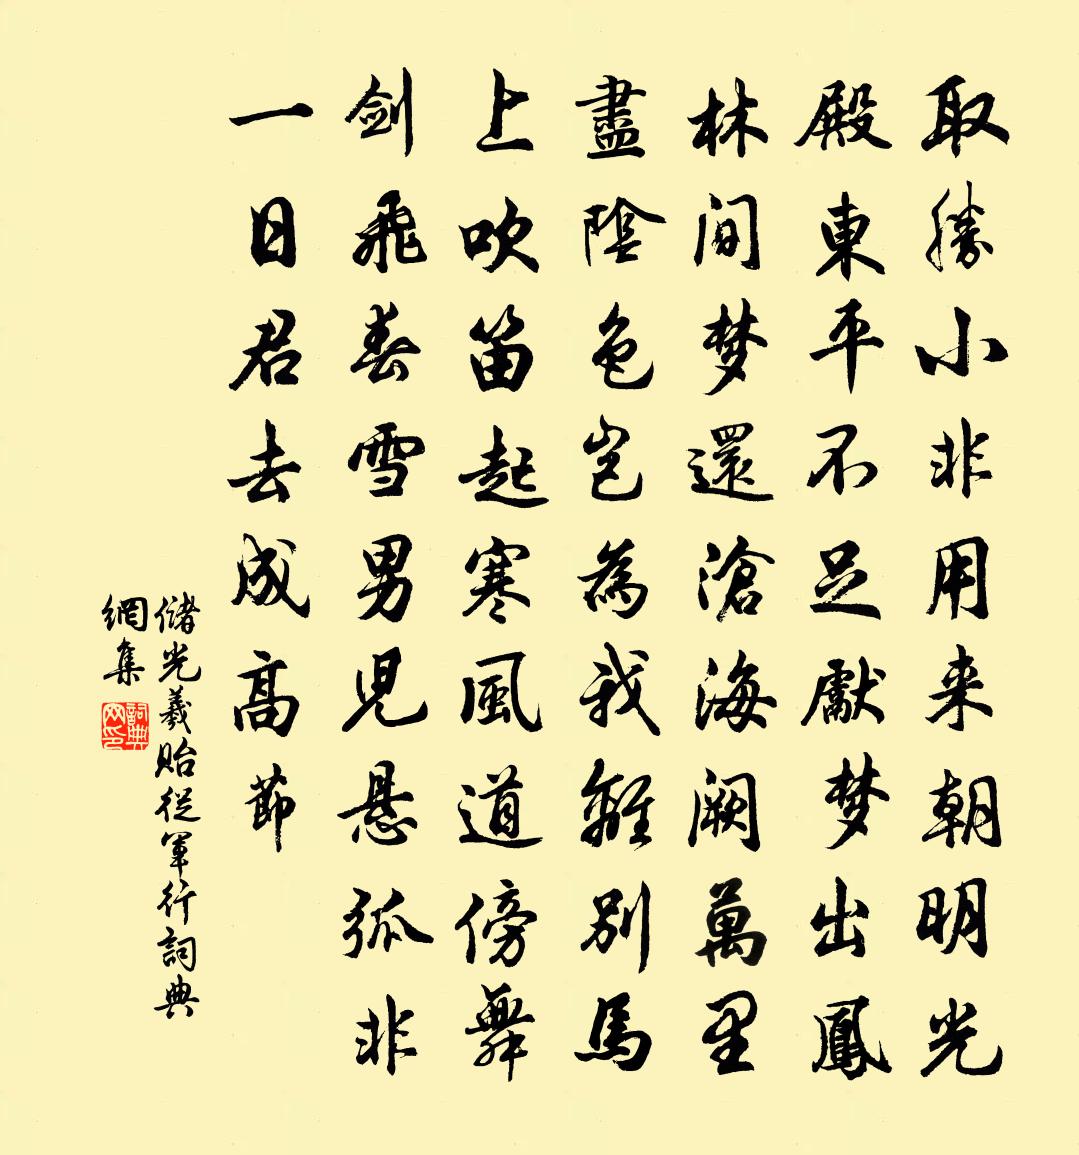 取勝小非用来朝明光
殿東平不足獻梦出鳳
林间梦還滄海阙萬里
盡陰色岂為我離别馬
上吹笛起寒風道傍舞
剑飛春雪男児悬弧非
一日君去成高節
儲光羲貽從軍行詞典
網集
詞典网印